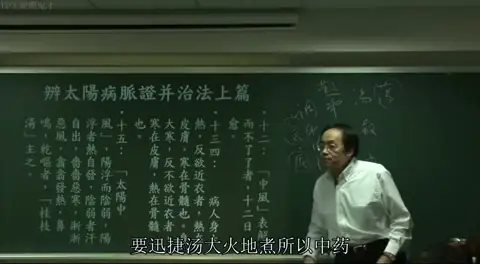 辨太陽病脈證并治法上篇
十二：「中風」表解
而不了了者，十二日
愈。
十三四：病人身
熱，反欲近衣者，熱
皮膚，寒在骨髓也。
大寒，反不欲近衣者
寒在皮膚，熱在骨髓
也。
十五：「太陽中
風」，陽浮而陰弱，陽
浮者熱自發，陰弱者汗
自出，嗇嗇惡寒，淅淅
惡風，翕翕發熱，鼻
鳴，乾嘔者，「桂枝
湯」主之。
要迅捷汤大火地煮所以中药